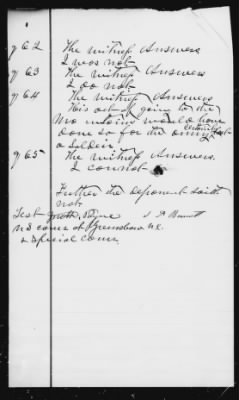 q 62 The witness Answers
I was not
q 63 The witness Answers
I do not
q 64 The witness Answers
His act of going to the
would have
done so for the army
a Soldier.
q 65 The witness Answers.
I can not
Further the deponent saith
not
Test
N S comr at Greensboro N.C.
& Special comr